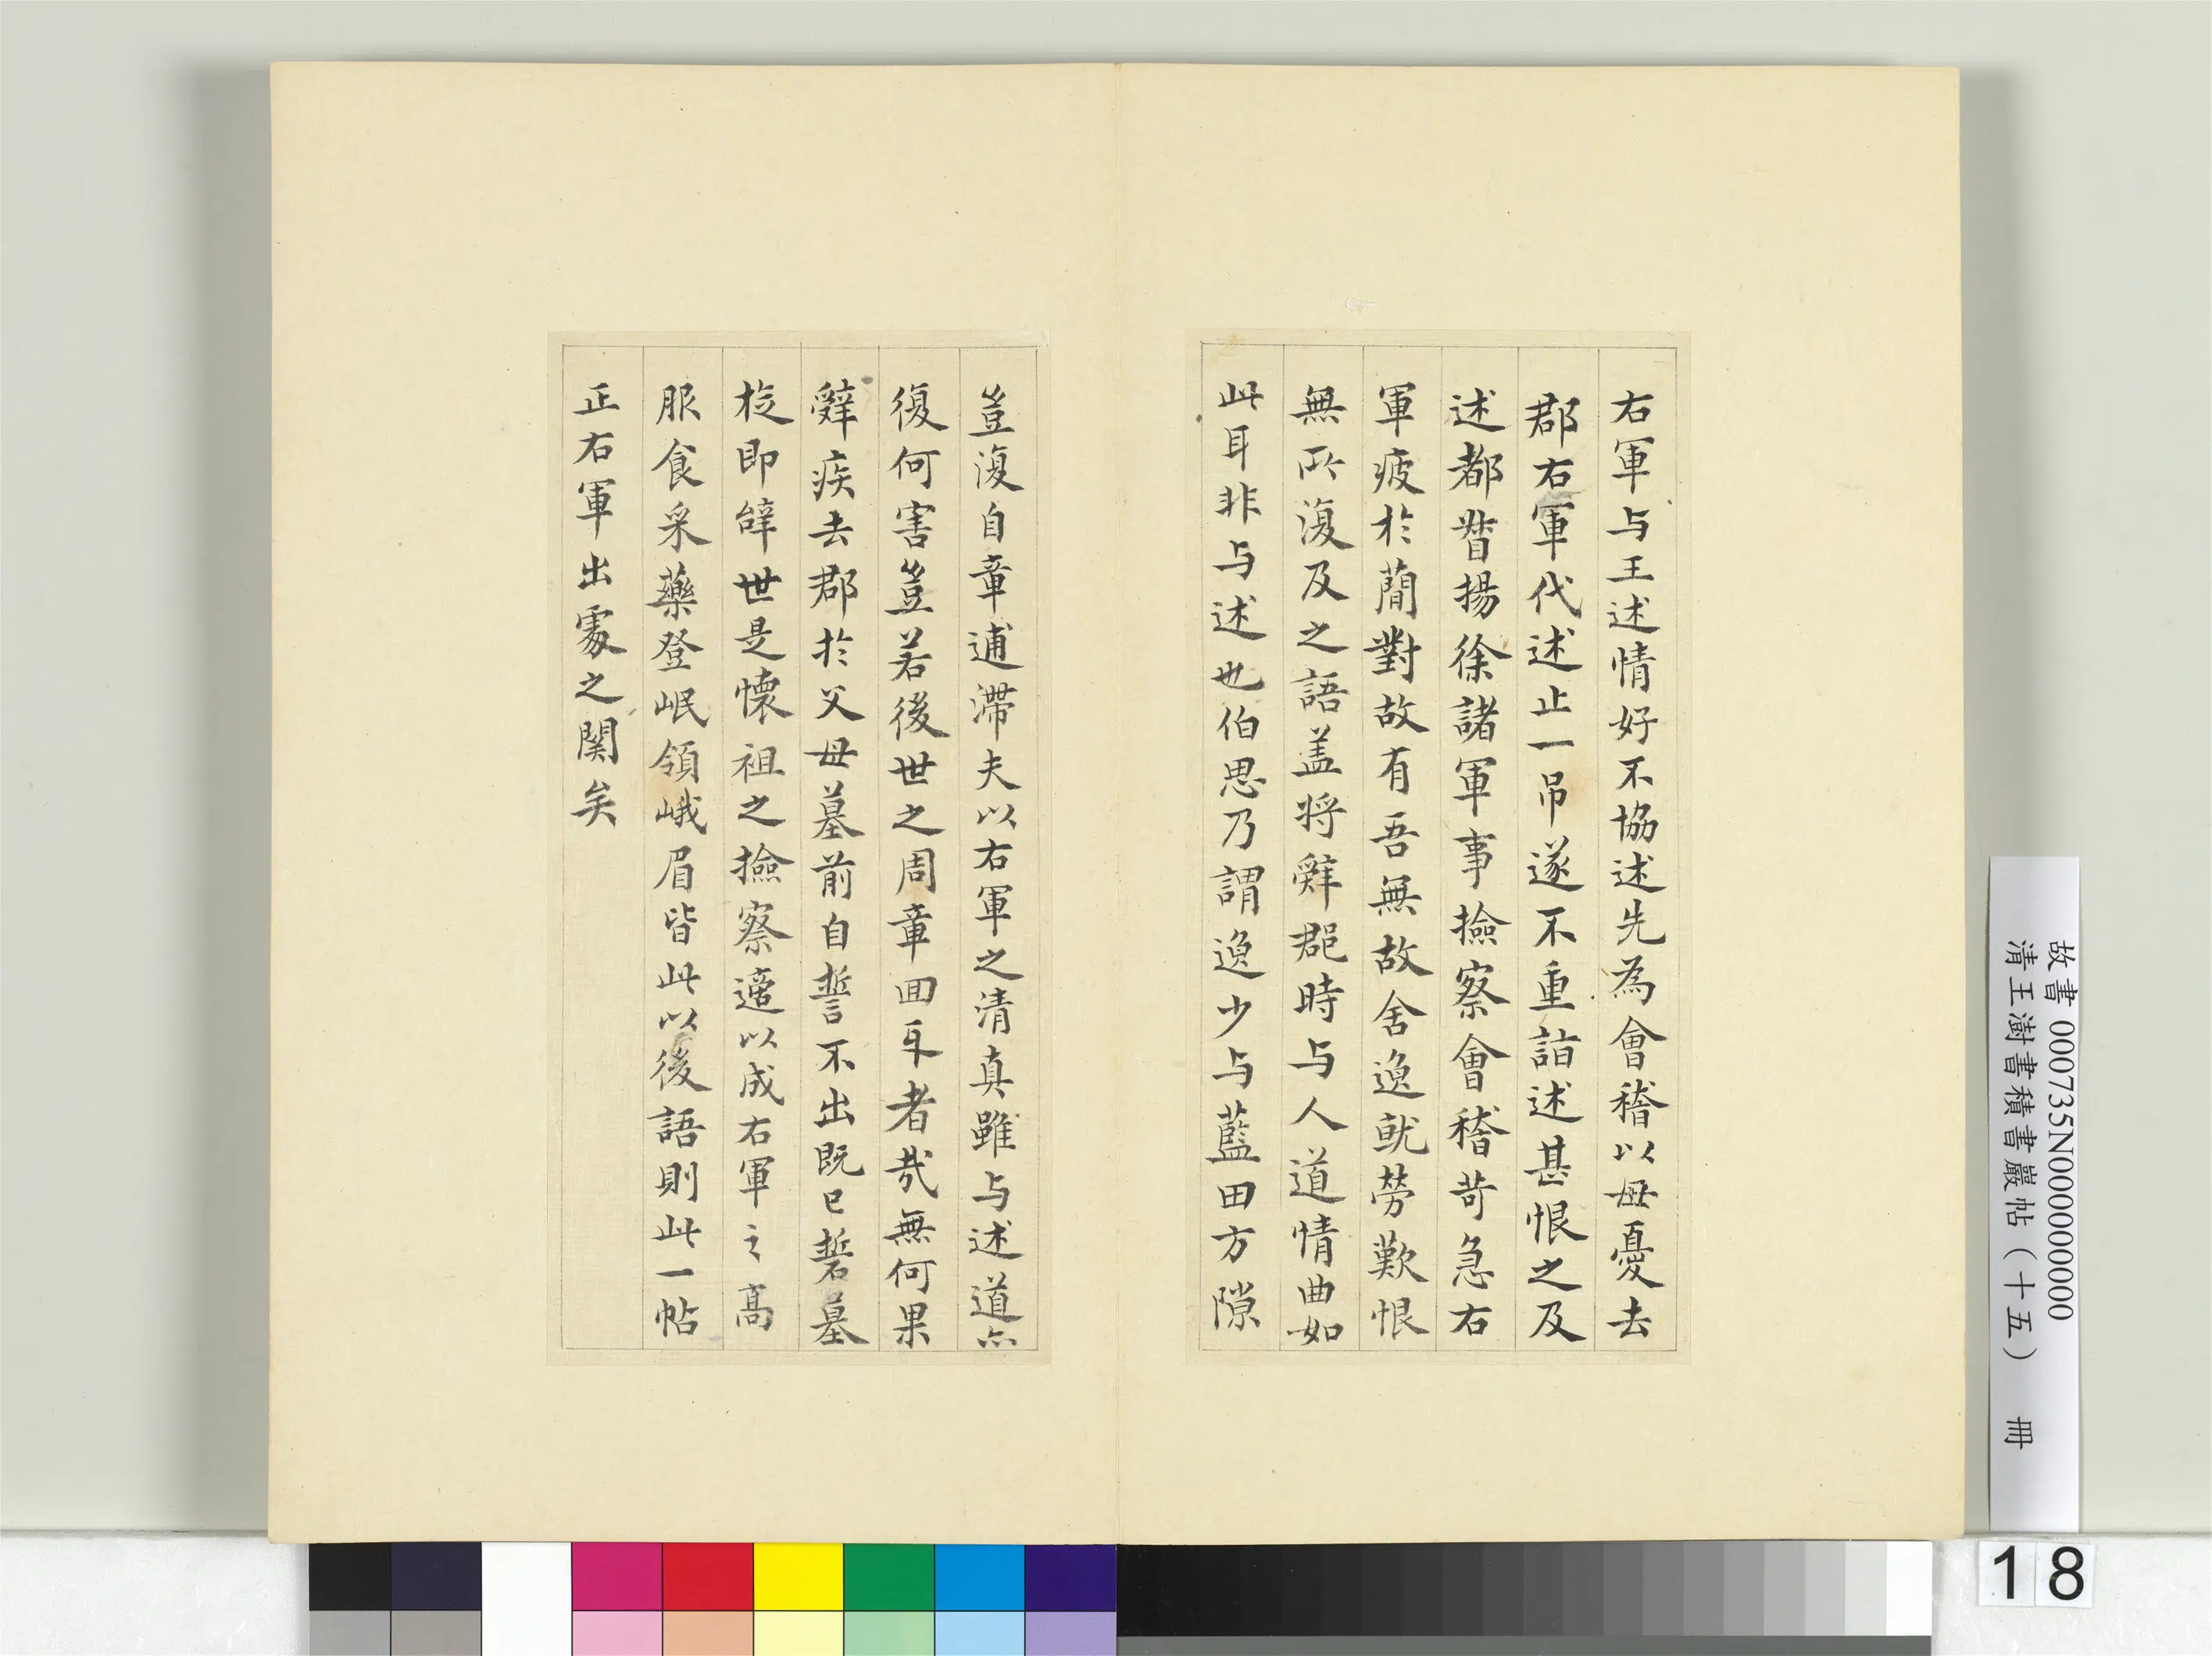 右軍与王述情好不協述先為會稽以母憂去
郡右軍代述止一吊遂不重詣述甚恨之及
述都督揚徐諸軍事撿察會稽苛急右
軍疲於蕳對故有吾無故舍逸就勞歎恨
無所復及之語盖將辤郡時与人道情曲如
此耳非与述也伯思乃謂逸少与藍田方隙
豈復自章逋滯夫以右軍之清真雖与述道亦
復何害豈若後世之周章囬互者哉無何果
辤疾去郡於父母墓前自誓不出既已誓墓
旋即辭世是懷祖之撿察適以成右軍之高
服食采藥登岷領峨眉皆此以後語則此一帖
正右軍出處之関矣
故書 000735N000000000
清王澍書積書巖帖（十五） 冊
18